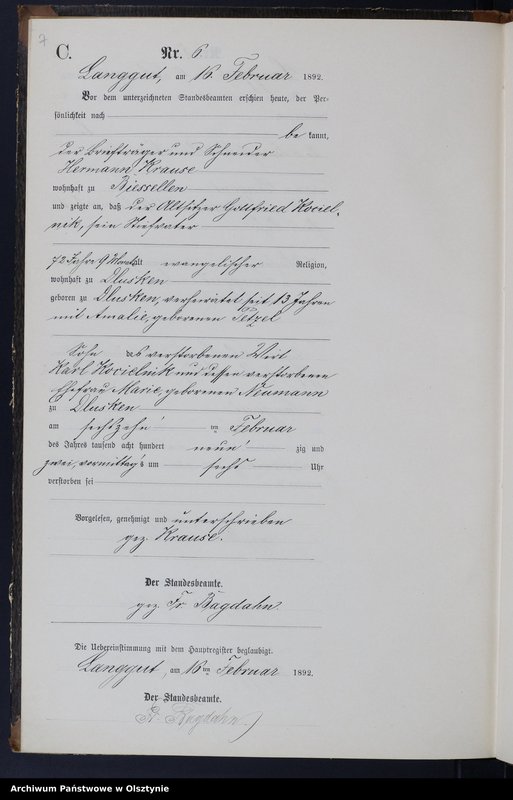 7
C. Nr. 6.
Langgut, am 16 Februar 1892.
Vor dem unterzeichneten Standesbeamten erschien heute, der Per-
sönlichkeit nach
be kannt,
der Briefträger und Schneider
Hermann Krause
wohnhaft zu Biessellen
und zeigte an, daß der Altsitzer Gottfried Kociel-
nik, sein Stiefvater
72 Jahre 9 Monat alt evangelischer Religion,
wohnhaft zu Dlusken
geboren zu Dlusken, verheiratet seit 13 Jahren
mit Amalie, geborenen Petzel
Sohn des verstorbenen Wirt
Karl Kocielnik und dessen verstorbenen
Ehefrau Marie, geborenen Neumann
zu Dlusken
am sechszehn ten Februar
des Jahres tausend acht hundert neun zig und
zwei, vormittag's um sechs Uhr
verstorben sei
Vorgelesen, genehmigt und unterschrieben
gez. Krause.
Der Standesbeamte.
gez. Fr. Bagdahn.
Die Uebereinstimmung mit dem Hauptregister beglaubigt.
Langgut, am 16ten Februar 1892.
Der Standesbeamte.
Fr. Bagdahn
Archiwum Państwowe w Olsztynie